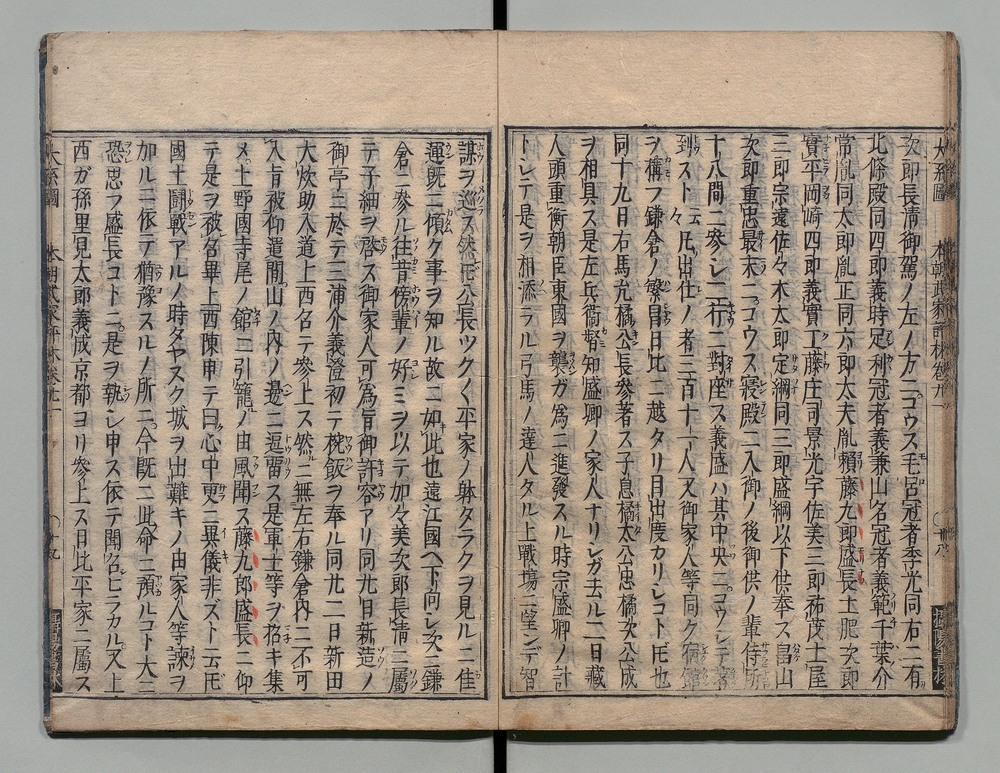 次郎長清御駕ノ左ノ方ニコウス毛呂冠者季光同右ニ有
北條殿同四郎義時足利冠者義兼山名冠者義範千葉介
常胤同太郎胤正同六郎太夫胤頼藤九郎盛長土肥次郎
實平岡崎四郎義實工藤庄司景光宇佐美三郎祐茂土屋
三郎宗遠佐々木太郎定綱同三郎盛綱以下供奉ス畠山
次郎重忠最末ニコウス寢殿ニ入御ノ後御供ノ輩侍所
十八間ニ參シ二行ニ對座ス義盛ハ其中央ニコウシテ著
到スト云々凡出仕ノ者三百十一人又御家人等同ク宿館
ヲ稱フ鎌倉ノ繁昌日比ニ越タリ目出度カリシコト𪜈也
同十九日右馬允橘公長參著ス子息橘太公忠橘次公成
ヲ相具ス是左兵衞督知盛卿ノ家人ナリシガ去ル二日藏
人頭重衡朝臣東國ヲ襲ガ為ニ進發スル時宗盛卿ノ計
トシテ是ヲ相添ラル弓馬ノ達人タル上戰場ニ望ンデ智
謀ヲ巡ス然𪜈公長ツクく平家ノ躰タラクヲ見ルニ佳
運既ニ傾ク事ヲ知ル故ニ如此也遠江國ヘ下向シ次ニ鎌
倉ニ參ル往昔傍輩ノ好ミヲ以テ加々美次郎長清ニ屬
テ子細ヲ啓ス御家人可為旨御許容アリ同廿日新造ノ
御亭ニ於テ三浦介義澄初テ椀飯ヲ奉ル同廿二日新田
大炊助入道上西名テ參上ス然ニ無左右鎌倉内ニ不可
入旨被仰遣間山ノ内ノ邊ニ逗留ス是軍士等ヲ招キ集
メ上野國寺尾ノ館ニ引籠ノ由風聞ス藤九郎盛長ニ仰
テ是ヲ被名畢上西陳申テ曰心中更ニ異儀非ズト云𪜈
國土鬪戰アルノ時タヤスク城ヲ出難キノ由家人等諫ヲ
加ルニ依テ猶豫スルノ所ニ今既ニ此命ニ預ルコト大ニ
恐思フ盛長コトニ是ヲ執シ申ス依テ開カセラル又上
西ガ孫里見太郎義成京都ヨリ參上ス日比平家ニ屬ス